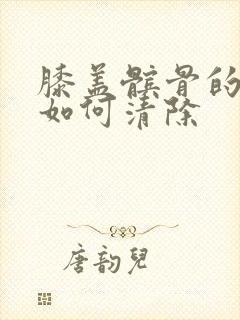 膝盖髌骨的
如何清除
唐韵儿